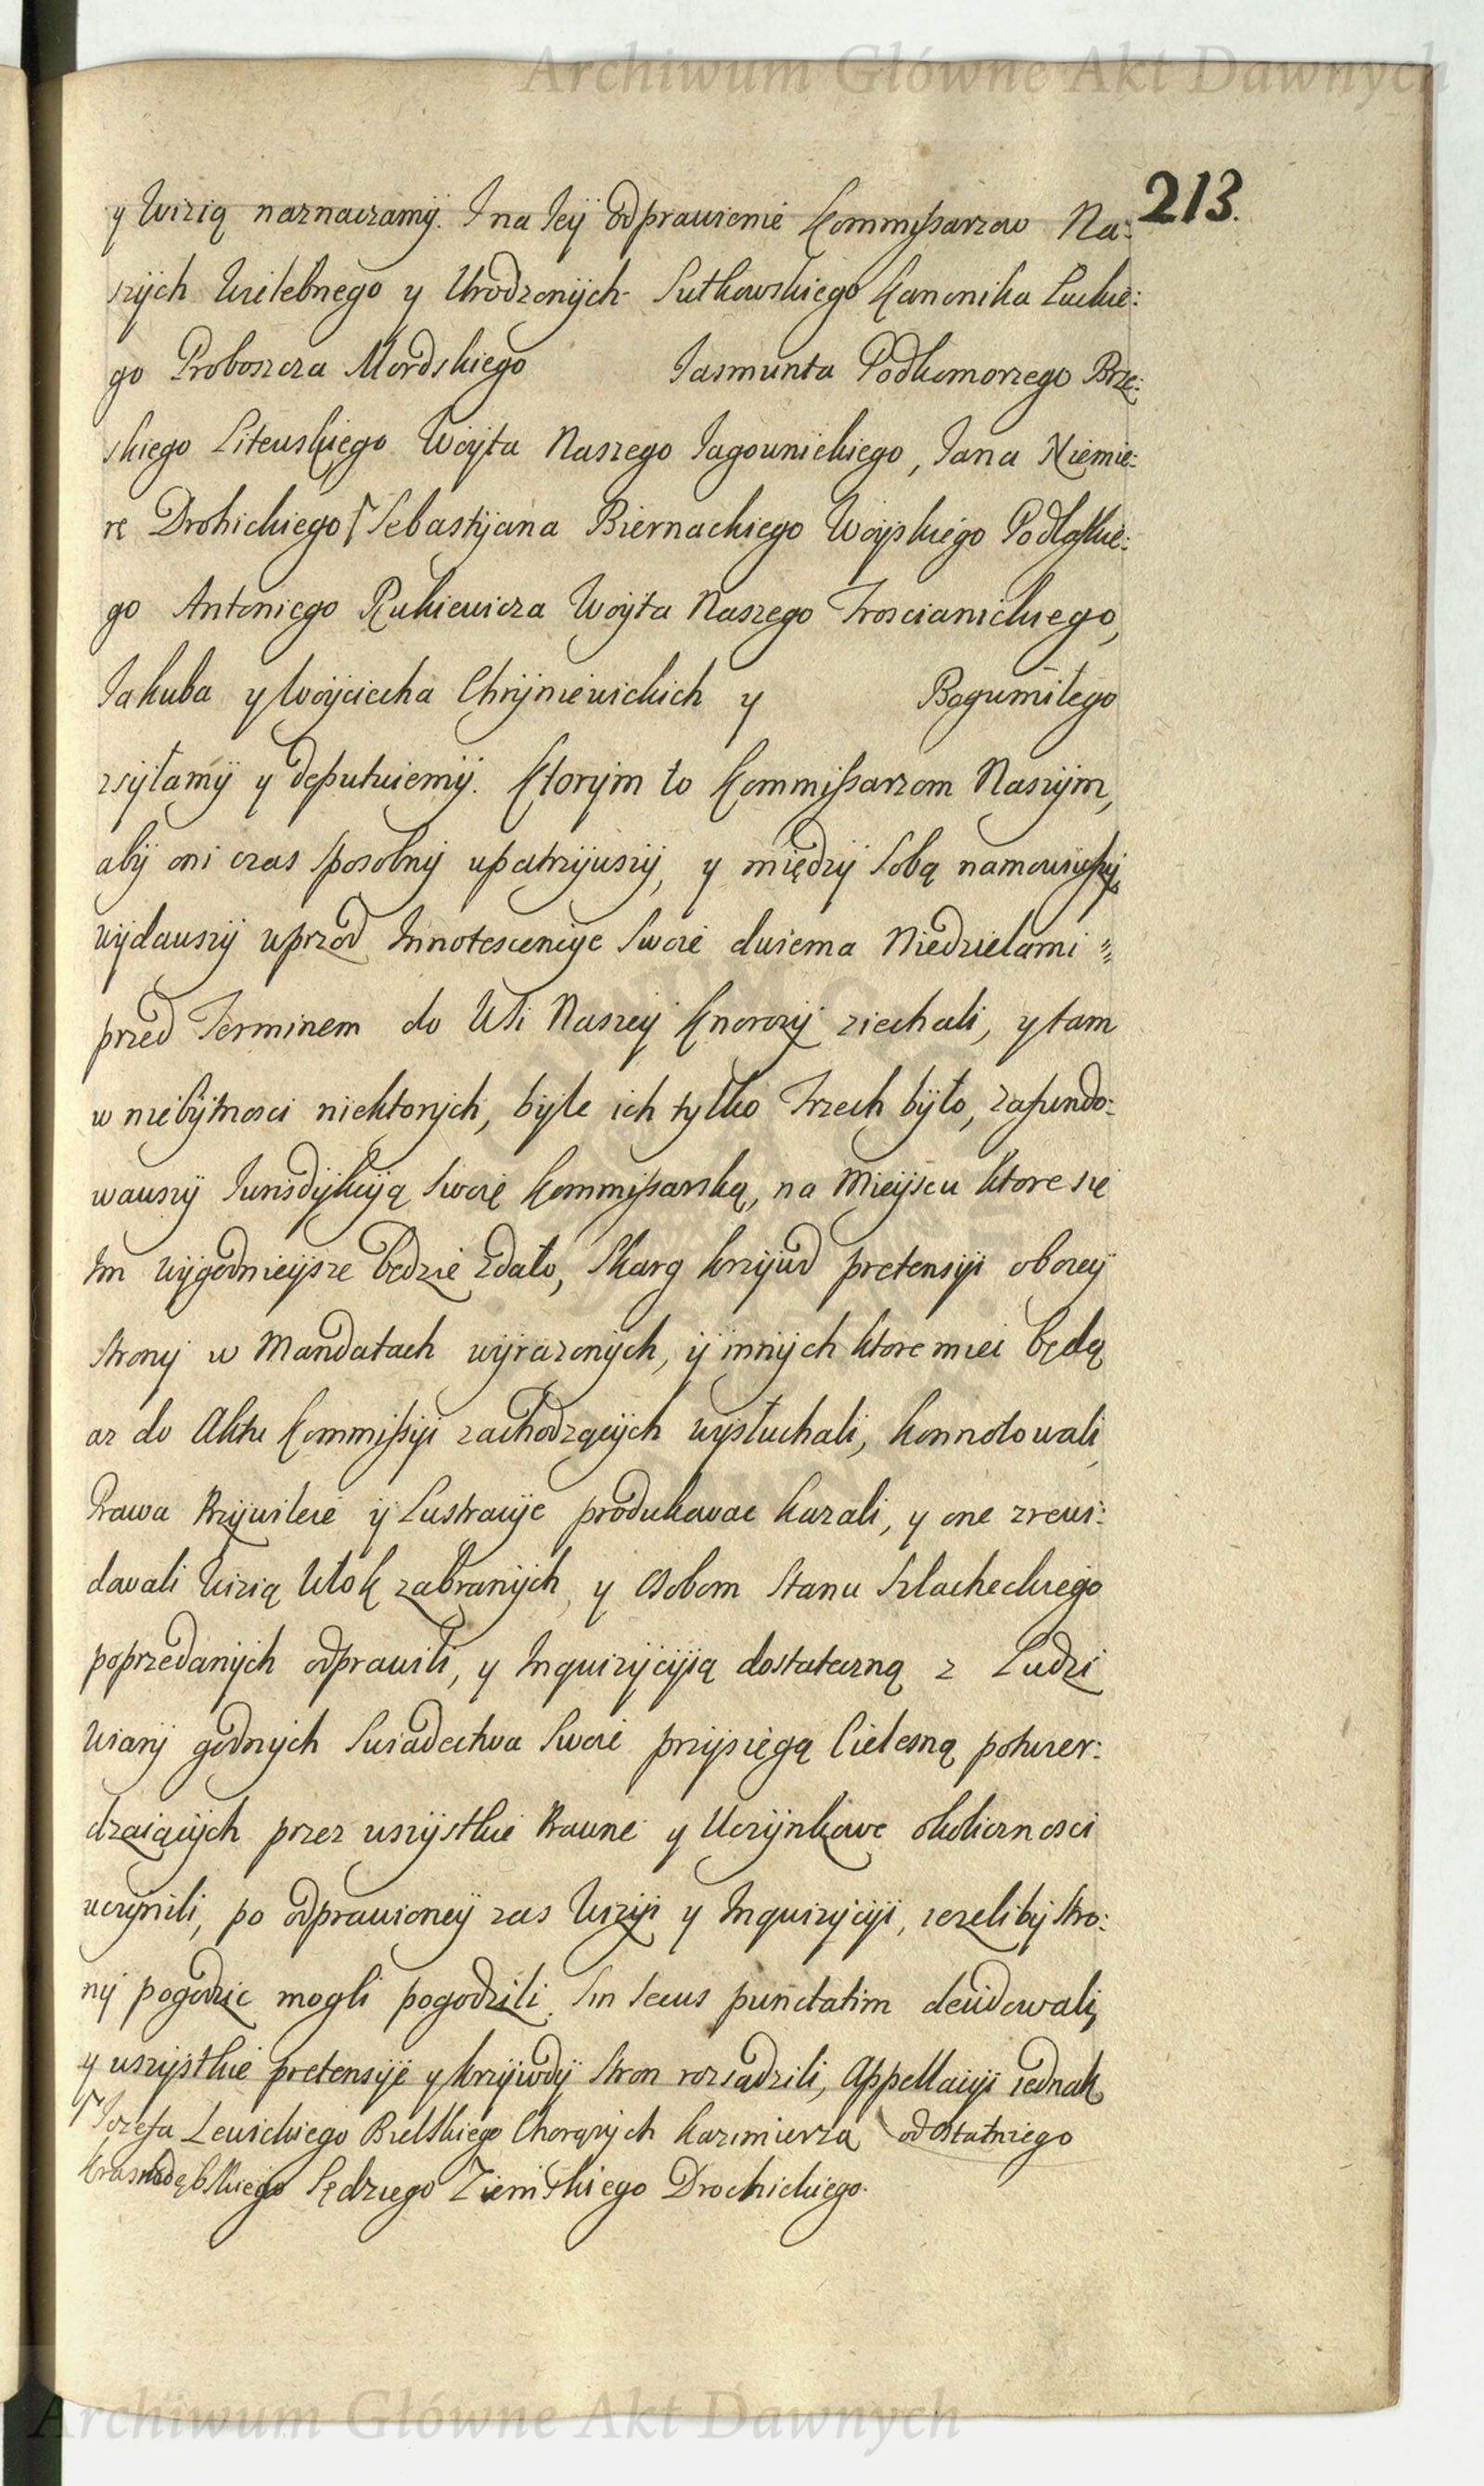 Archiwum Główne Akt Dawnych
213.
y Wizią naznaczamÿ. I na Ieÿ odprawienie Kommissarzow Na:
szÿch Wielebnego y Urodzonÿch Sutkowskiego Kanonika Luckie:
go Proboszcza Mordskiego Iasmunta Podkomorzego Brze:
skiego Litewskiego Woÿta Naszego Iagownickiego, Iana Niemie:
rę Drohickiego Sebastÿana Biernackiego Woÿskiego Podlaskie:
go Antoniego Rukiewicza Woÿta Naszego Troscianickiego,
Iakuba y Woÿciecha Chrÿniewickich y Bogumiłego
zsÿłamÿ y deputuiemÿ. Ktorÿm to Kommissarzom Naszÿm,
abÿ oni czas sposobnÿ upatrzÿwszÿ, y międzÿ sobą namowiwszÿ
wÿdawszÿ wprzod Innotescencÿe Swoie dwiema Niedzielami
przed Terminem do Wsi Naszeÿ Knorozÿ ziechali, y tam
w niebÿtnosci niektorÿch, bÿle ich tylko Trzech bÿło, zafundo:
wawszÿ Iurisdÿkcÿą Swoię Kommissarską, na Mieÿscu ktore się
Im wÿgodnieÿsze będzie zdało, Skarg krzÿwd pretensÿi oboieÿ
stronÿ w Mandatach wÿrazonÿch, ÿ innÿch ktore miei będą
az do Aktu Kommissÿi zachodzącÿch wÿsłuchali, konnotowali
Prawa Przÿwileie ÿ Lustracÿe produkowac kazali, y one zrewi:
dowali Wizią Włok zabranÿch, y osobom Stanu Szlacheckiego
poprzedanÿch odprawili, y Inquizÿcÿią dostateczną z Ludzi
Wiarÿ godnÿch Swiadectwa Swoie przÿsięgą Cielesną potwier:
dzaiącÿch przez wszÿstkie Prawne y Uczÿnkowe okolicznosci
uczÿnili, po odprawioneÿ zas Wizÿi y Inquizÿcÿi, iezelibÿ Stro:
nÿ pogodzic mogli pogodzili. Sin secus punctatim decidowali,
y wszÿstkie pretensÿe y krzÿwdÿ Stron rozsadzili, Appellacÿi iednak
Iozefa Lewickiego Bielskiego Chorązÿch Kazimierza od Ostatniego
Krasnodębskiego Sędziego Ziemskiego Drochickiego.
Archiwum Główne Akt Dawnych